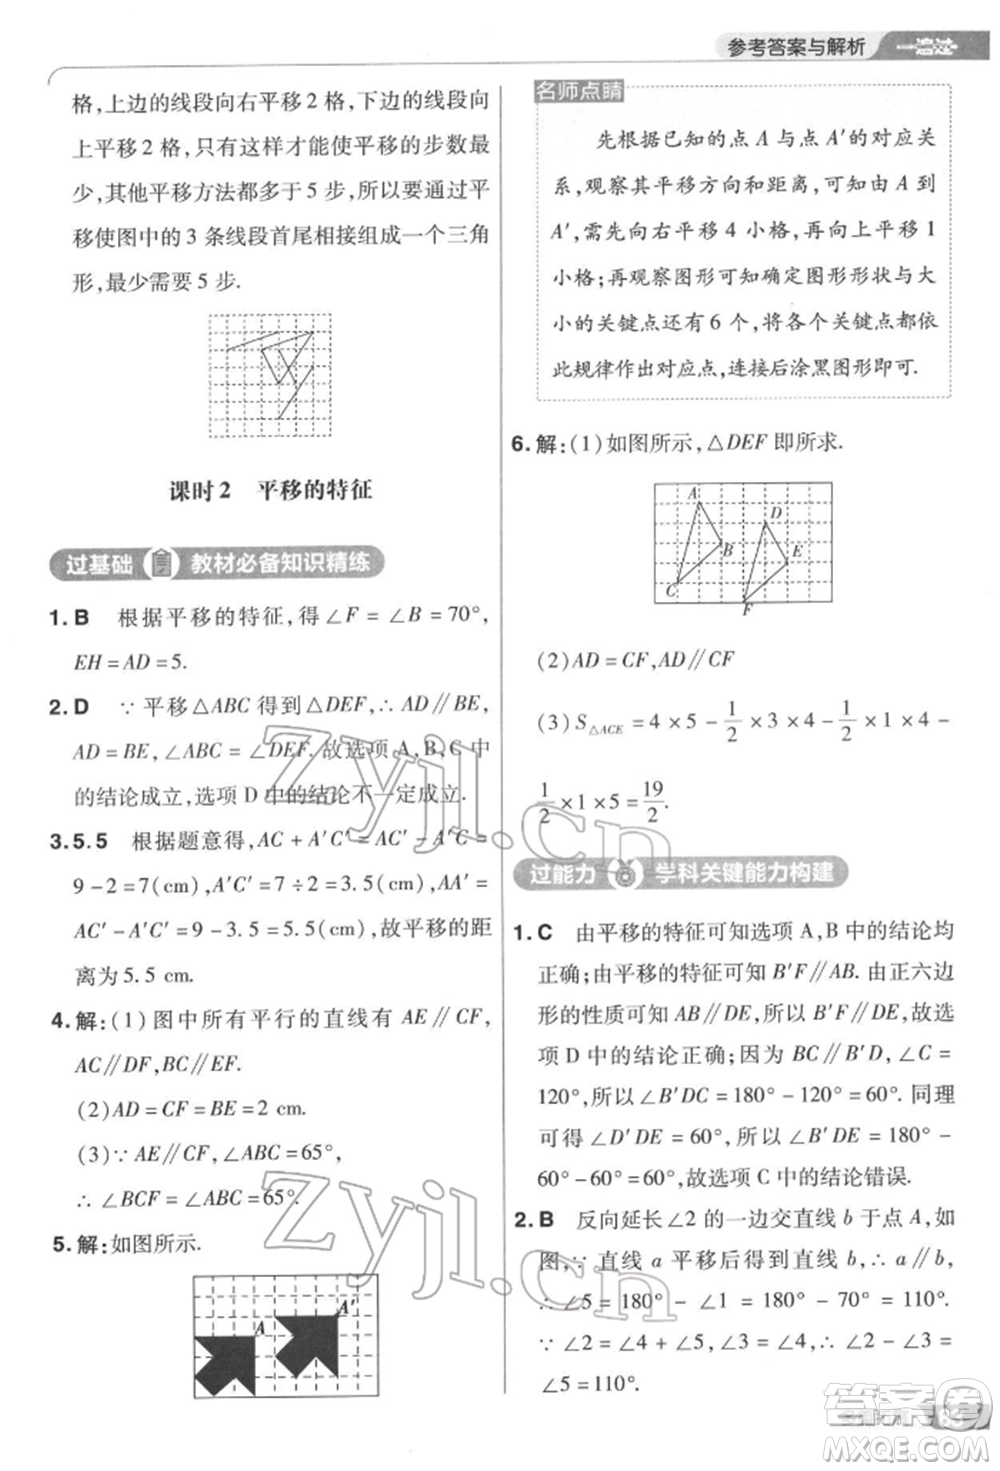 参考答案与解析 一遍过
格,上边的线段向右平移 2 格,下边的线段向
上平移 2 格,只有这样才能使平移的步数最
少,其他平移方法都多于 5 步,所以要通过平
移使图中的 3 条线段首尾相接组成一个三角
形,最少需要 5 步.
课时 2 平移的特征
过基础 教材必备知识精练
1. B 根据平移的特征,得∠F=∠B=70°,
EH=AD=5.
2. D ∵平移△ABC 得到△DEF,∴AD∥BE,
AD=BE,∠ABC=∠DEF.故选项 A,B,C 中
的结论成立,选项 D 中的结论不一定成立.
3. 5.5 根据题意得,AC+A'C'=AC'-A'C=
9-2=7(cm),A'C'=7÷2=3.5(cm),AA'=
AC'-A'C'=9-3.5=5.5(cm),故平移的距
离为 5.5 cm.
4. 解:(1)图中所有平行的直线有 AE∥CF,
AC∥DF,BC∥EF.
(2)AD=CF=BE=2 cm.
(3)∵AE∥CF,∠ABC=65°,
∴∠BCF=∠ABC=65°.
5. 解:如图所示.
A
A'
名师点睛
先根据已知的点 A 与点 A'的对应关
系,观察其平移方向和距离,可知由 A 到
A',需先向右平移 4 小格,再向上平移 1
小格;再观察图形可知确定图形形状与大
小的关键点还有 6 个,将各个关键点都依
此规律作出对应点,连接后涂黑图形即可.
6. 解:(1)如图所示,△DEF 即所求.
A
D
B
E
C
F
(2)AD=CF,AD∥CF
(3)S△ACE=4×5-1/2×3×4-1/2×1×4-
1/2×1×5=19/2.
过能力 学科关键能力构建
1. C 由平移的特征可知选项 A,B 中的结论均
正确;由平移的特征可知 B'F∥AB.由正六边
形的性质可知 AB∥DE,所以 B'F∥DE,故选
项 D 中的结论正确;因为 BC∥B'D,∠C=
120°,所以∠B'DC=180°-120°=60°.同理
可得∠D'DE=60°,所以∠B'DE=180°-
60°-60°=60°,故选项 C 中的结论错误.
2. B 反向延长∠2 的一边交直线 b 于点 A,如
图,∵直线 a 平移后得到直线 b,∴a∥b,
∴∠5=180°-∠1=180°-70°=110°.
∵∠2=∠4+∠5,∠3=∠4,∴∠2-∠3=
∠5=110°.
zyjl.cn
zyjl.cn
答案圈
MXQE.COM